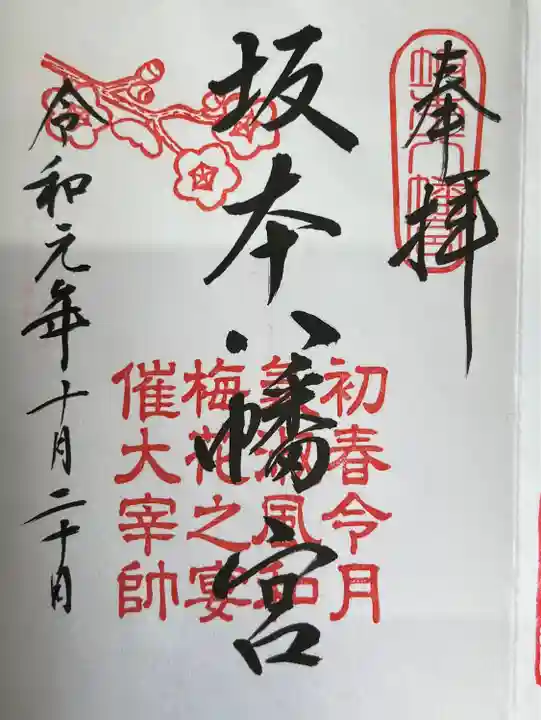 奉拝
坂本八幡宮
初春令月
美淑風和
梅花之宴
催大宰帥
令和元年十月二十日